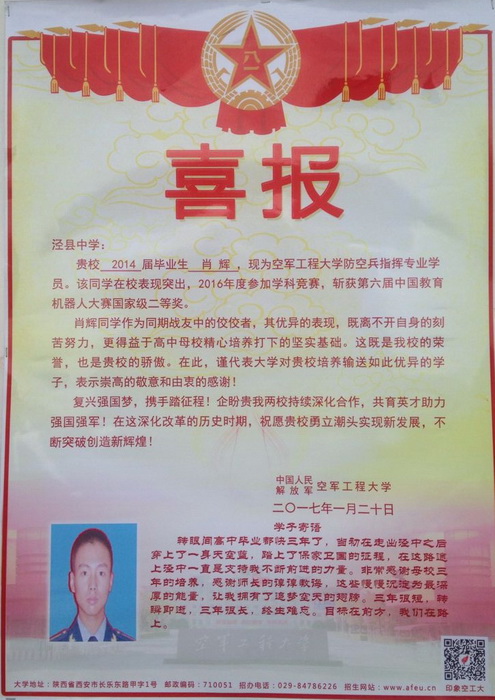 八一
喜报
泾县中学：
贵校 2014 届毕业生 肖辉，现为空军工程大学防空兵指挥专业学
员。该同学在校表现突出，2016年度参加学科竞赛，斩获第六届中国教育
机器人大赛国家级二等奖。
肖辉同学作为同期战友中的佼佼者，其优异的表现，既离不开自身的刻
苦努力，更得益于高中母校精心培养打下的坚实基础。这既是我校的荣
誉，也是贵校的骄傲。在此，谨代表大学对贵校培养输送如此优异的学
子，表示崇高的敬意和由衷的感谢！
复兴强国梦，携手踏征程！企盼贵我两校持续深化合作，共育英才助力
强国强军！在这深化改革的历史时期，祝愿贵校勇立潮头实现新发展，不
断突破创造新辉煌！
中国人民解放军 空军工程大学
二〇一七年一月二十日
学子寄语
转眼间高中毕业都快三年了，当初在走出泾中之后
穿上了一身天空蓝，踏上了保家卫国的征程，在这路途
上泾中一直是支持我不断前进的力量。非常感谢母校三
年的培养，感谢师长的谆谆教诲，这些慢慢沉淀为最深
厚的能量，让我拥有了追梦空天的翅膀。三年很短，转
瞬即逝，三年很长，终生难忘。目标在前方，我们在路
上。
大学地址：陕西省西安市长乐东路甲字1号 邮政编码：710051 招办电话：029-84786226 招生网站：www.afeu.cn 印象空工大